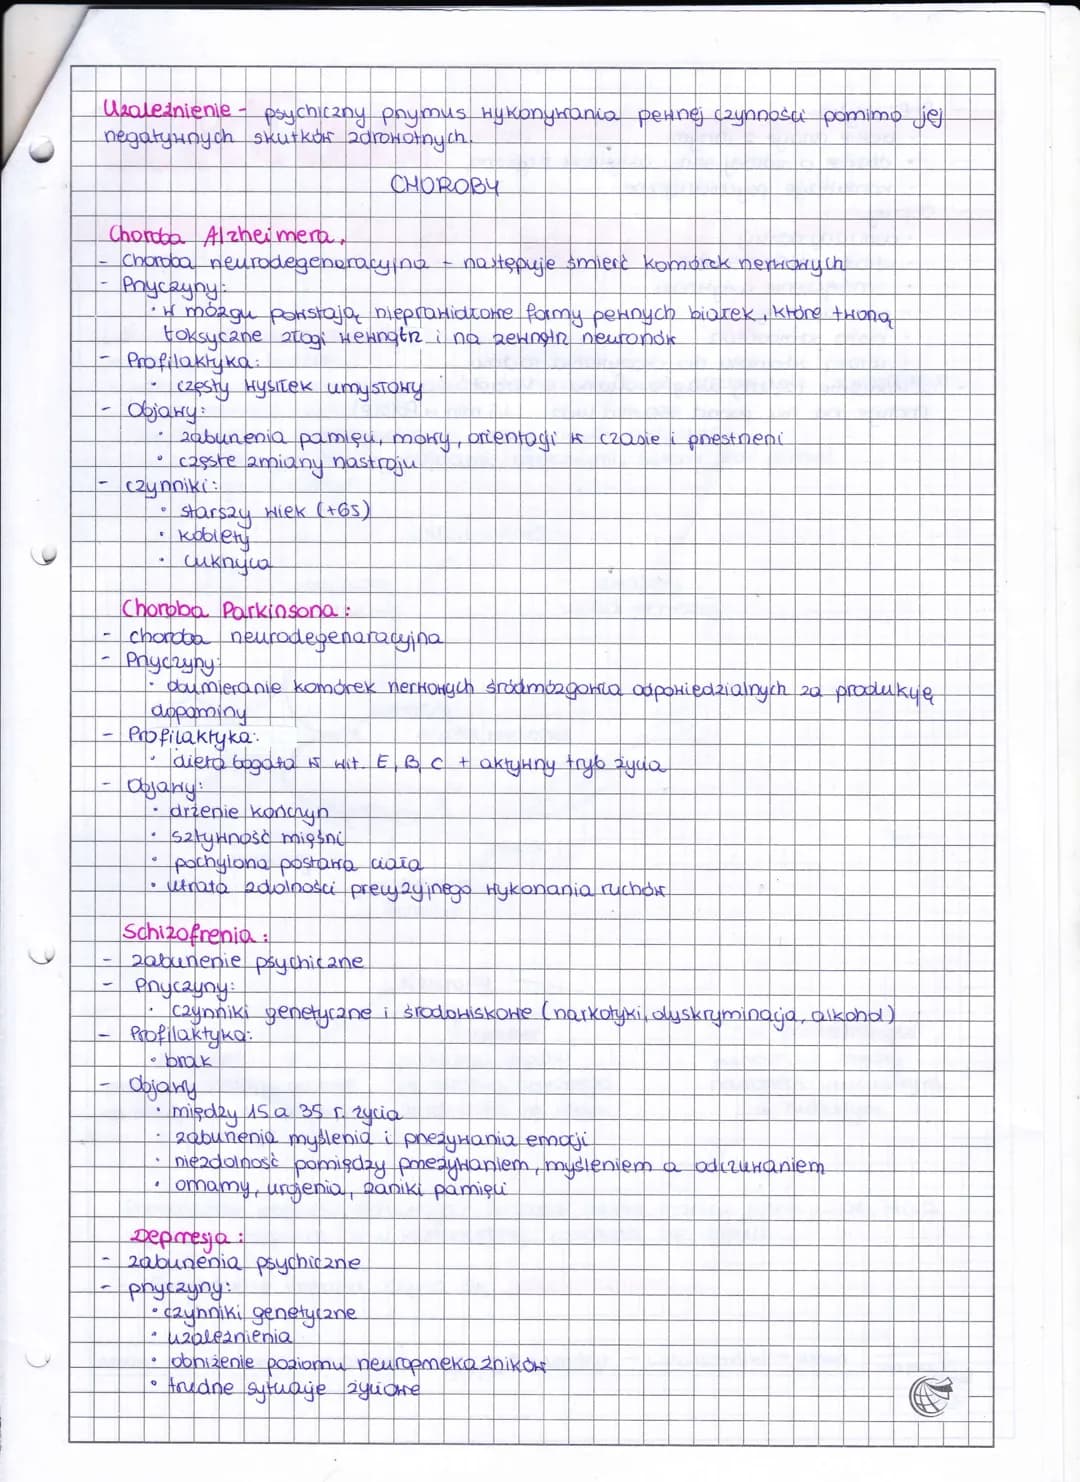 Uzależnienie - psychiczny przymus wykonywania pewnej czynności pomimo jej
negatywnych skutków zdrowotnych.
CHOROBY
Choroba Alzheimera.
- Choroba neurodegeneracyjna - następuje śmierć komórek nerwowych
- Przyczyny:
• w mózgu powstają nieprawidłowe formy pewnych białek, które tworzą
toksyczne złogi wewnątrz i na zewnątrz neuronów
- Profilaktyka:
• częsty wysiłek umysłowy
- Objawy:
• zaburzenia pamięci, mowy, orientacji w czasie i przestrzeni
• częste zmiany nastroju
- czynniki:
• starszy wiek (+65)
• kobiety
• cukrzyca
Choroba Parkinsona:
- choroba neurodegenaracyjna
- Przyczyny:
• obumieranie komórek nerwowych śródmózgowia odpowiedzialnych za produkcję
dopaminy
- Profilaktyka:
• dieta bogata w wit. E, B, C + aktywny tryb życia
- Objawy:
• drżenie kończyn
• sztywność mięśni
• pochylona postawa ciała
• utrata zdolności precyzyjnego wykonania ruchów
Schizofrenia:
- zaburzenie psychiczne
- Przyczyny:
• czynniki genetyczne i środowiskowe (narkotyki, dyskryminacja, alkohol)
- Profilaktyka:
• brak
- Objawy
• między 15 a 35 r. życia
• zaburzenia myślenia i przeżywania emocji
• niezdolność pomiędzy przeżywaniem, myśleniem a odczuwaniem
• omamy, urojenia, zaniki pamięci
Depresja:
- zaburzenia psychiczne
- przyczyny:
• czynniki genetyczne
• uzależnienia
• obniżenie poziomu neuroprzekaźników
• trudne sytuacje życiowe